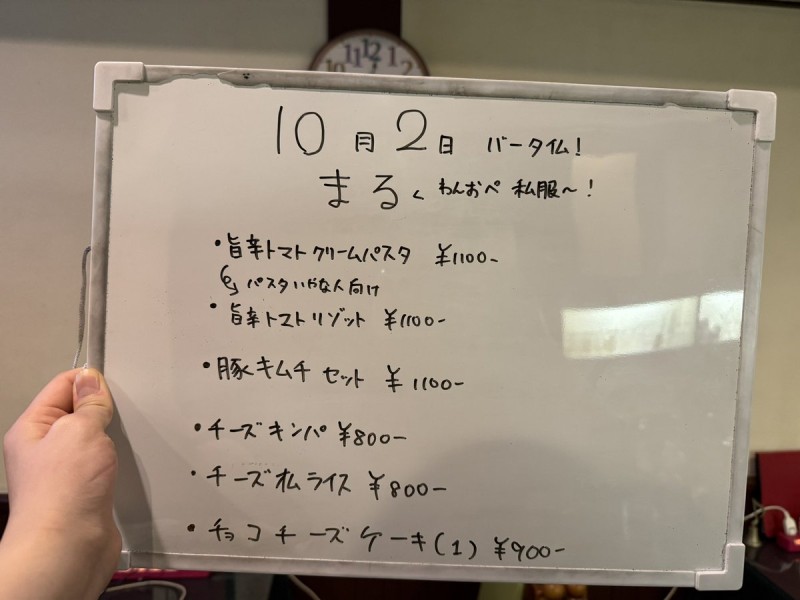 11 12 1 2
10月2日 バータイム!
まる く わんおぺ 私服〜!
・旨辛トマトクリームパスタ ¥1100-
パスタいやな人向け
・旨辛トマトリゾット ¥1100-
・豚キムチ セット ¥1100-
・チーズキンパ ¥800-
・チーズオムライス ¥800-
・チョコチーズケーキ(1) ¥900-